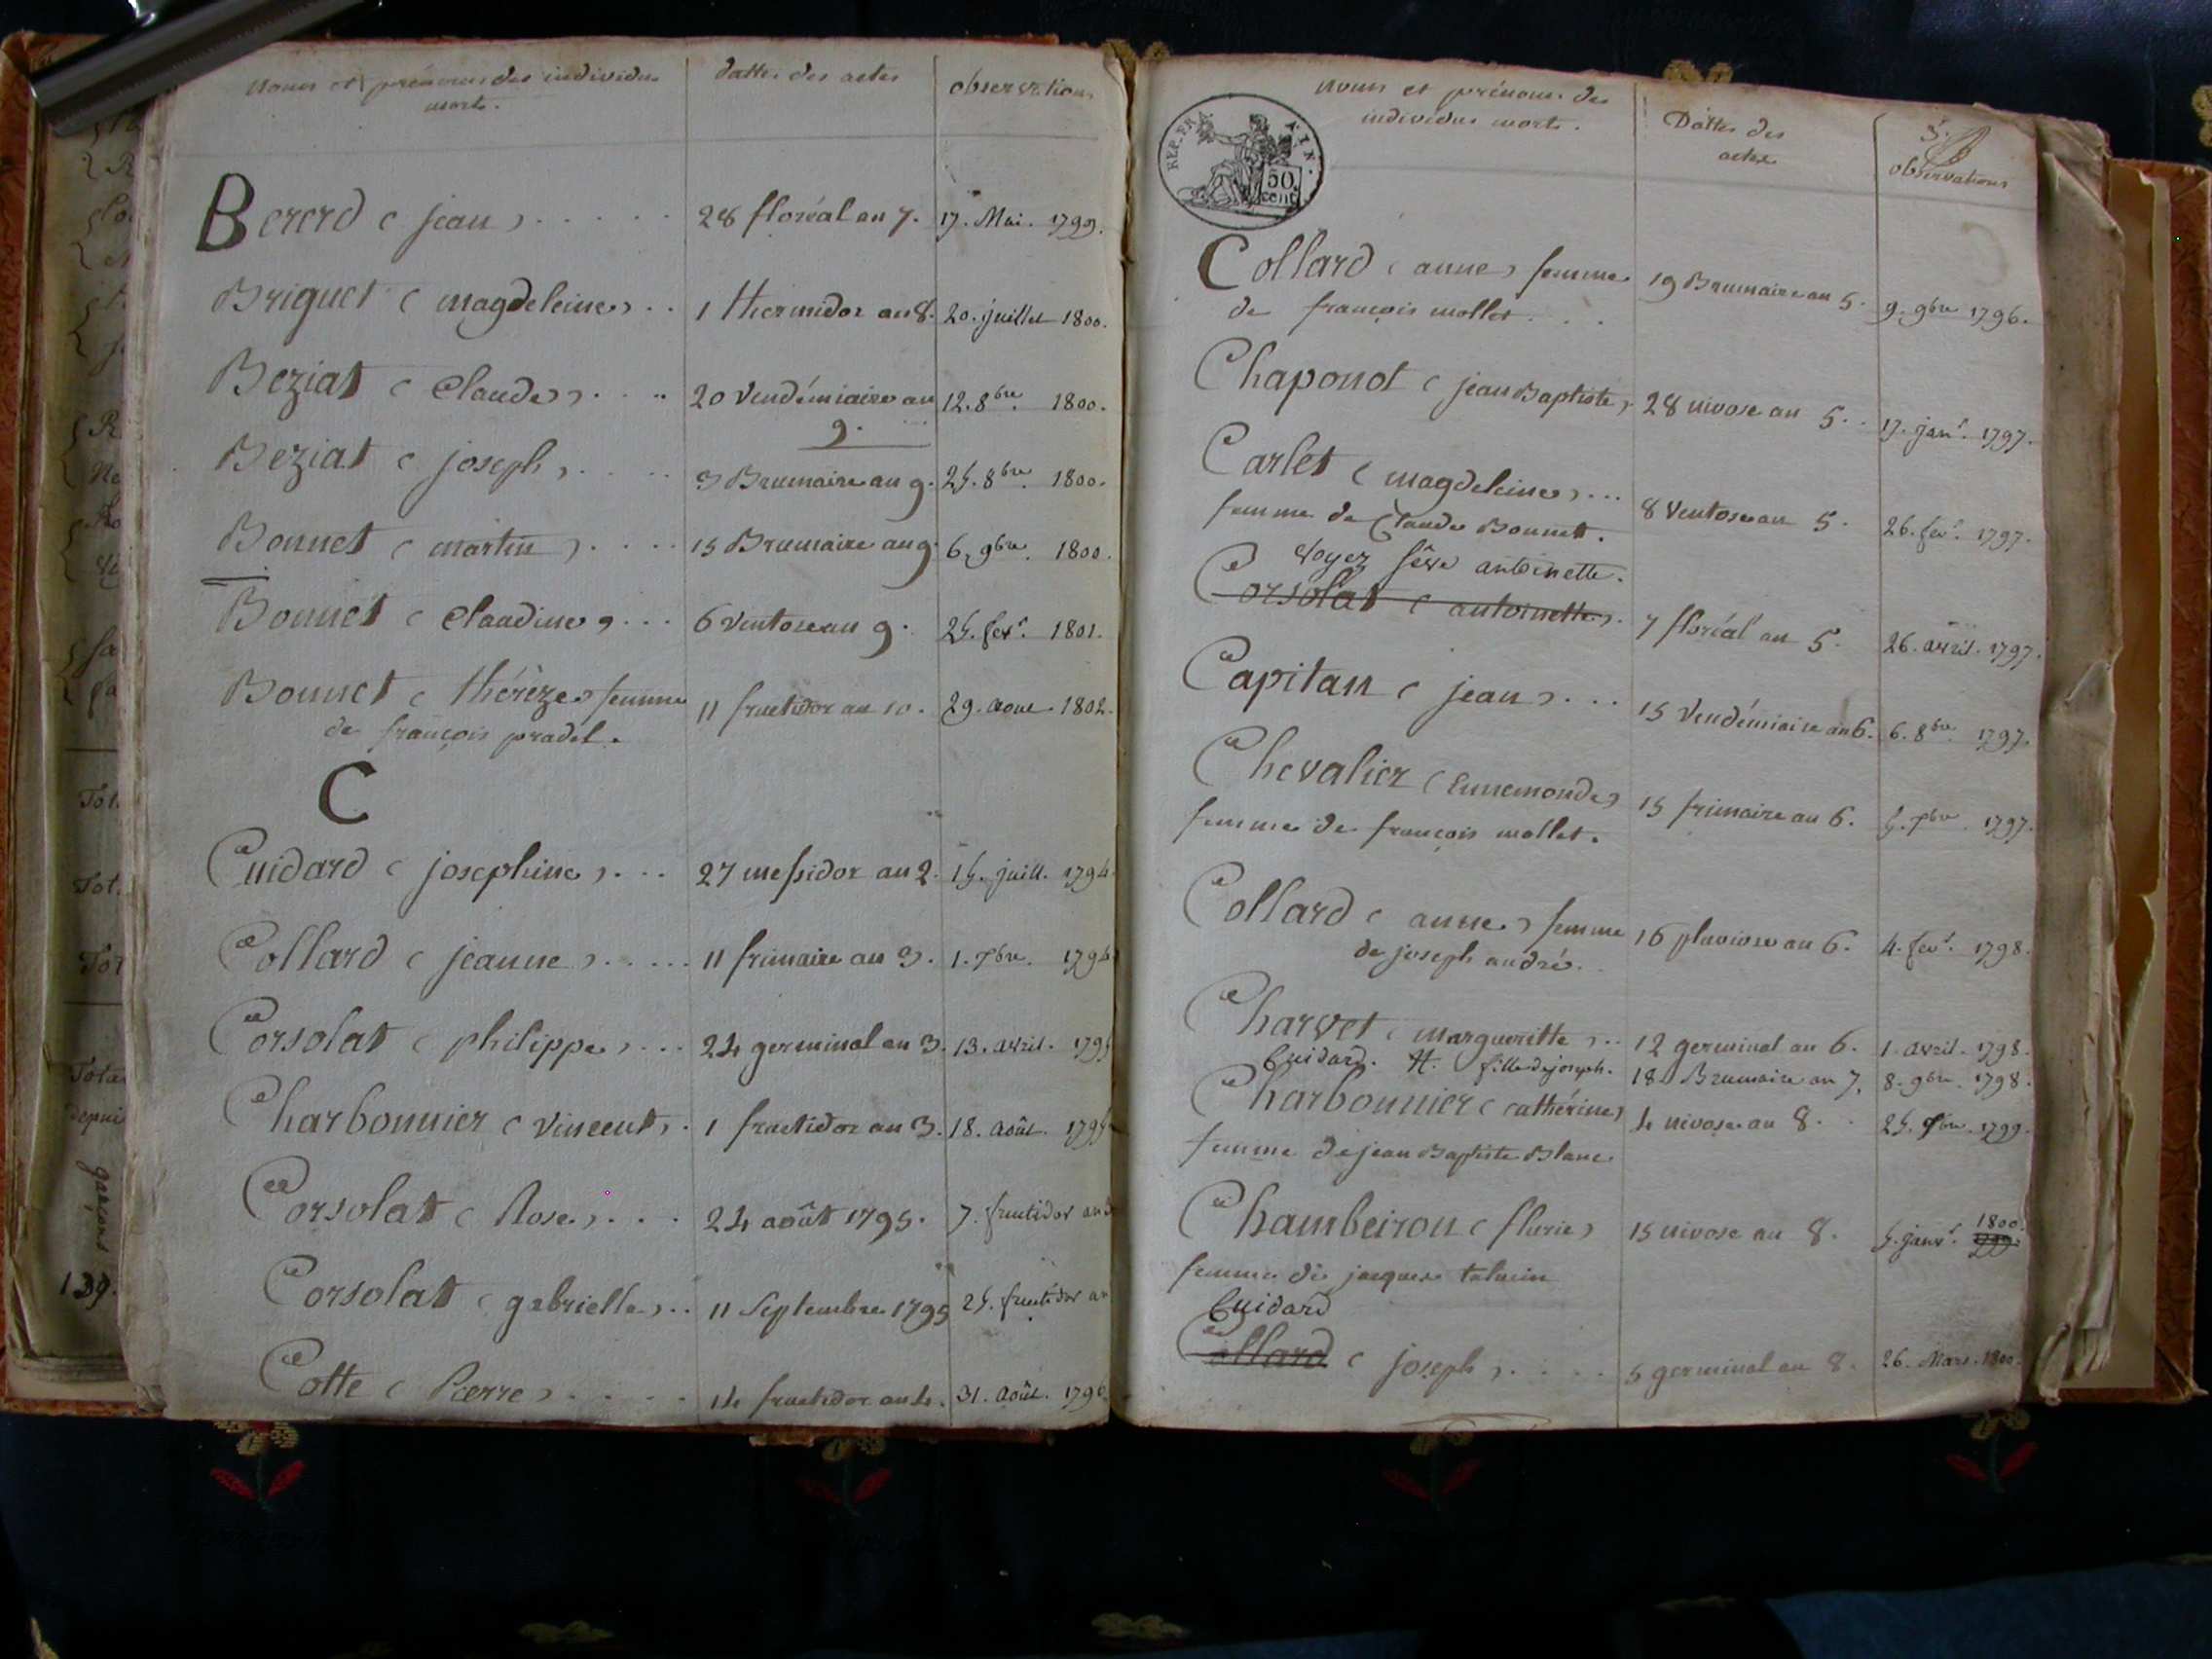 noms et prénoms des individus
morts.
dattes des actes
observations
Bererd ( jean ) . . . . . 28 floréal an 7. 17. Mai. 1799.
Briguet ( magdeleine ) . . 1 thermidor an 8. 20. juillet 1800.
Beziat ( Claude ) . . . . 20 Vendémiaire an 12. 8bre. 1800.
9.
Beziat ( joseph ) . . . . . 3 Brumaire an 9. 25. 8bre. 1800.
Bonnet ( martin ) . . . . 15 Brumaire an 9. 6. 9bre. 1800.
Bonnet ( Claudine ) . . . 6 Ventose an 9. 25. fevr. 1801.
Bonnet ( thérèze ) femme 11 fructidor an 10. 29. aout. 1802.
de françois pradel.
C
Cuidard ( josephine ) . . . 27 messidor an 2. 15. juill. 1794
Collard ( jeanne ) . . . . . 11 frimaire an 3. 1. Xbre. 1794
Corsolat ( philippe ) . . . 24 germinal an 3. 13. avril. 1795
Charbonnier ( Vincent ) . 1 fructidor an 3. 18. août. 1795
Corsolat ( Rose ) . . . 24 août 1795. 7. fructidor an 3
Corsolat ( gabrielle ) . . 11 Septembre 1795 25. fructidor an
Cotte ( Pierre ) . . . . . 14 fructidor an 4. 31. août. 1796.
REP. FRA
AIN.
50.
cent.
noms et prénoms des
individus morts.
Dattes des
actes
5.
observations
Collard ( anne ) femme 19 Brumaire an 5. 9. 9bre 1796.
de françois mollet . . .
Chaponot ( jean Baptiste ) . 28 nivose an 5. . 17. janr. 1797.
Carlet ( magdeleine ) . . . 8 Ventose an 5. 26. fevr. 1797.
femme de Claude Bonnet.
Voyez Sève antoinette.
Corsolat ( antoinette ) . 7 floréal an 5. 26. avril. 1797.
Capitan ( jean ) . . . 15 Vendémiaire an 6. 6. 8bre. 1797.
Chevalier ( Ennemonde ) 15 frimaire an 6. 5. Xbre. 1797.
femme de françois mollet.
Collard ( anne ) femme 16 pluviose an 6. 4. fevr. 1798.
de joseph andré.
Charvet ( margueritte ) . . 12 germinal an 6. 1. avril. 1798.
Cuidard. H. fille de joseph. 18. Brumaire an 7. 8. 9bre. 1798.
Charbonnier ( cathérine ) 4 nivose an 8. . 25. Xbre. 1799.
femme de jean Baptiste Blanc
1800.
Chambeiron ( flurie ) 15 nivose an 8. 5. janvr. 1799.
femme de jacques
Cuidard
Collard ( joseph ) . . . . . 5 germinal an 8. 26. Mars. 1800.
Tot.
Tot.
Tot
Tota
depui
garçons
139.